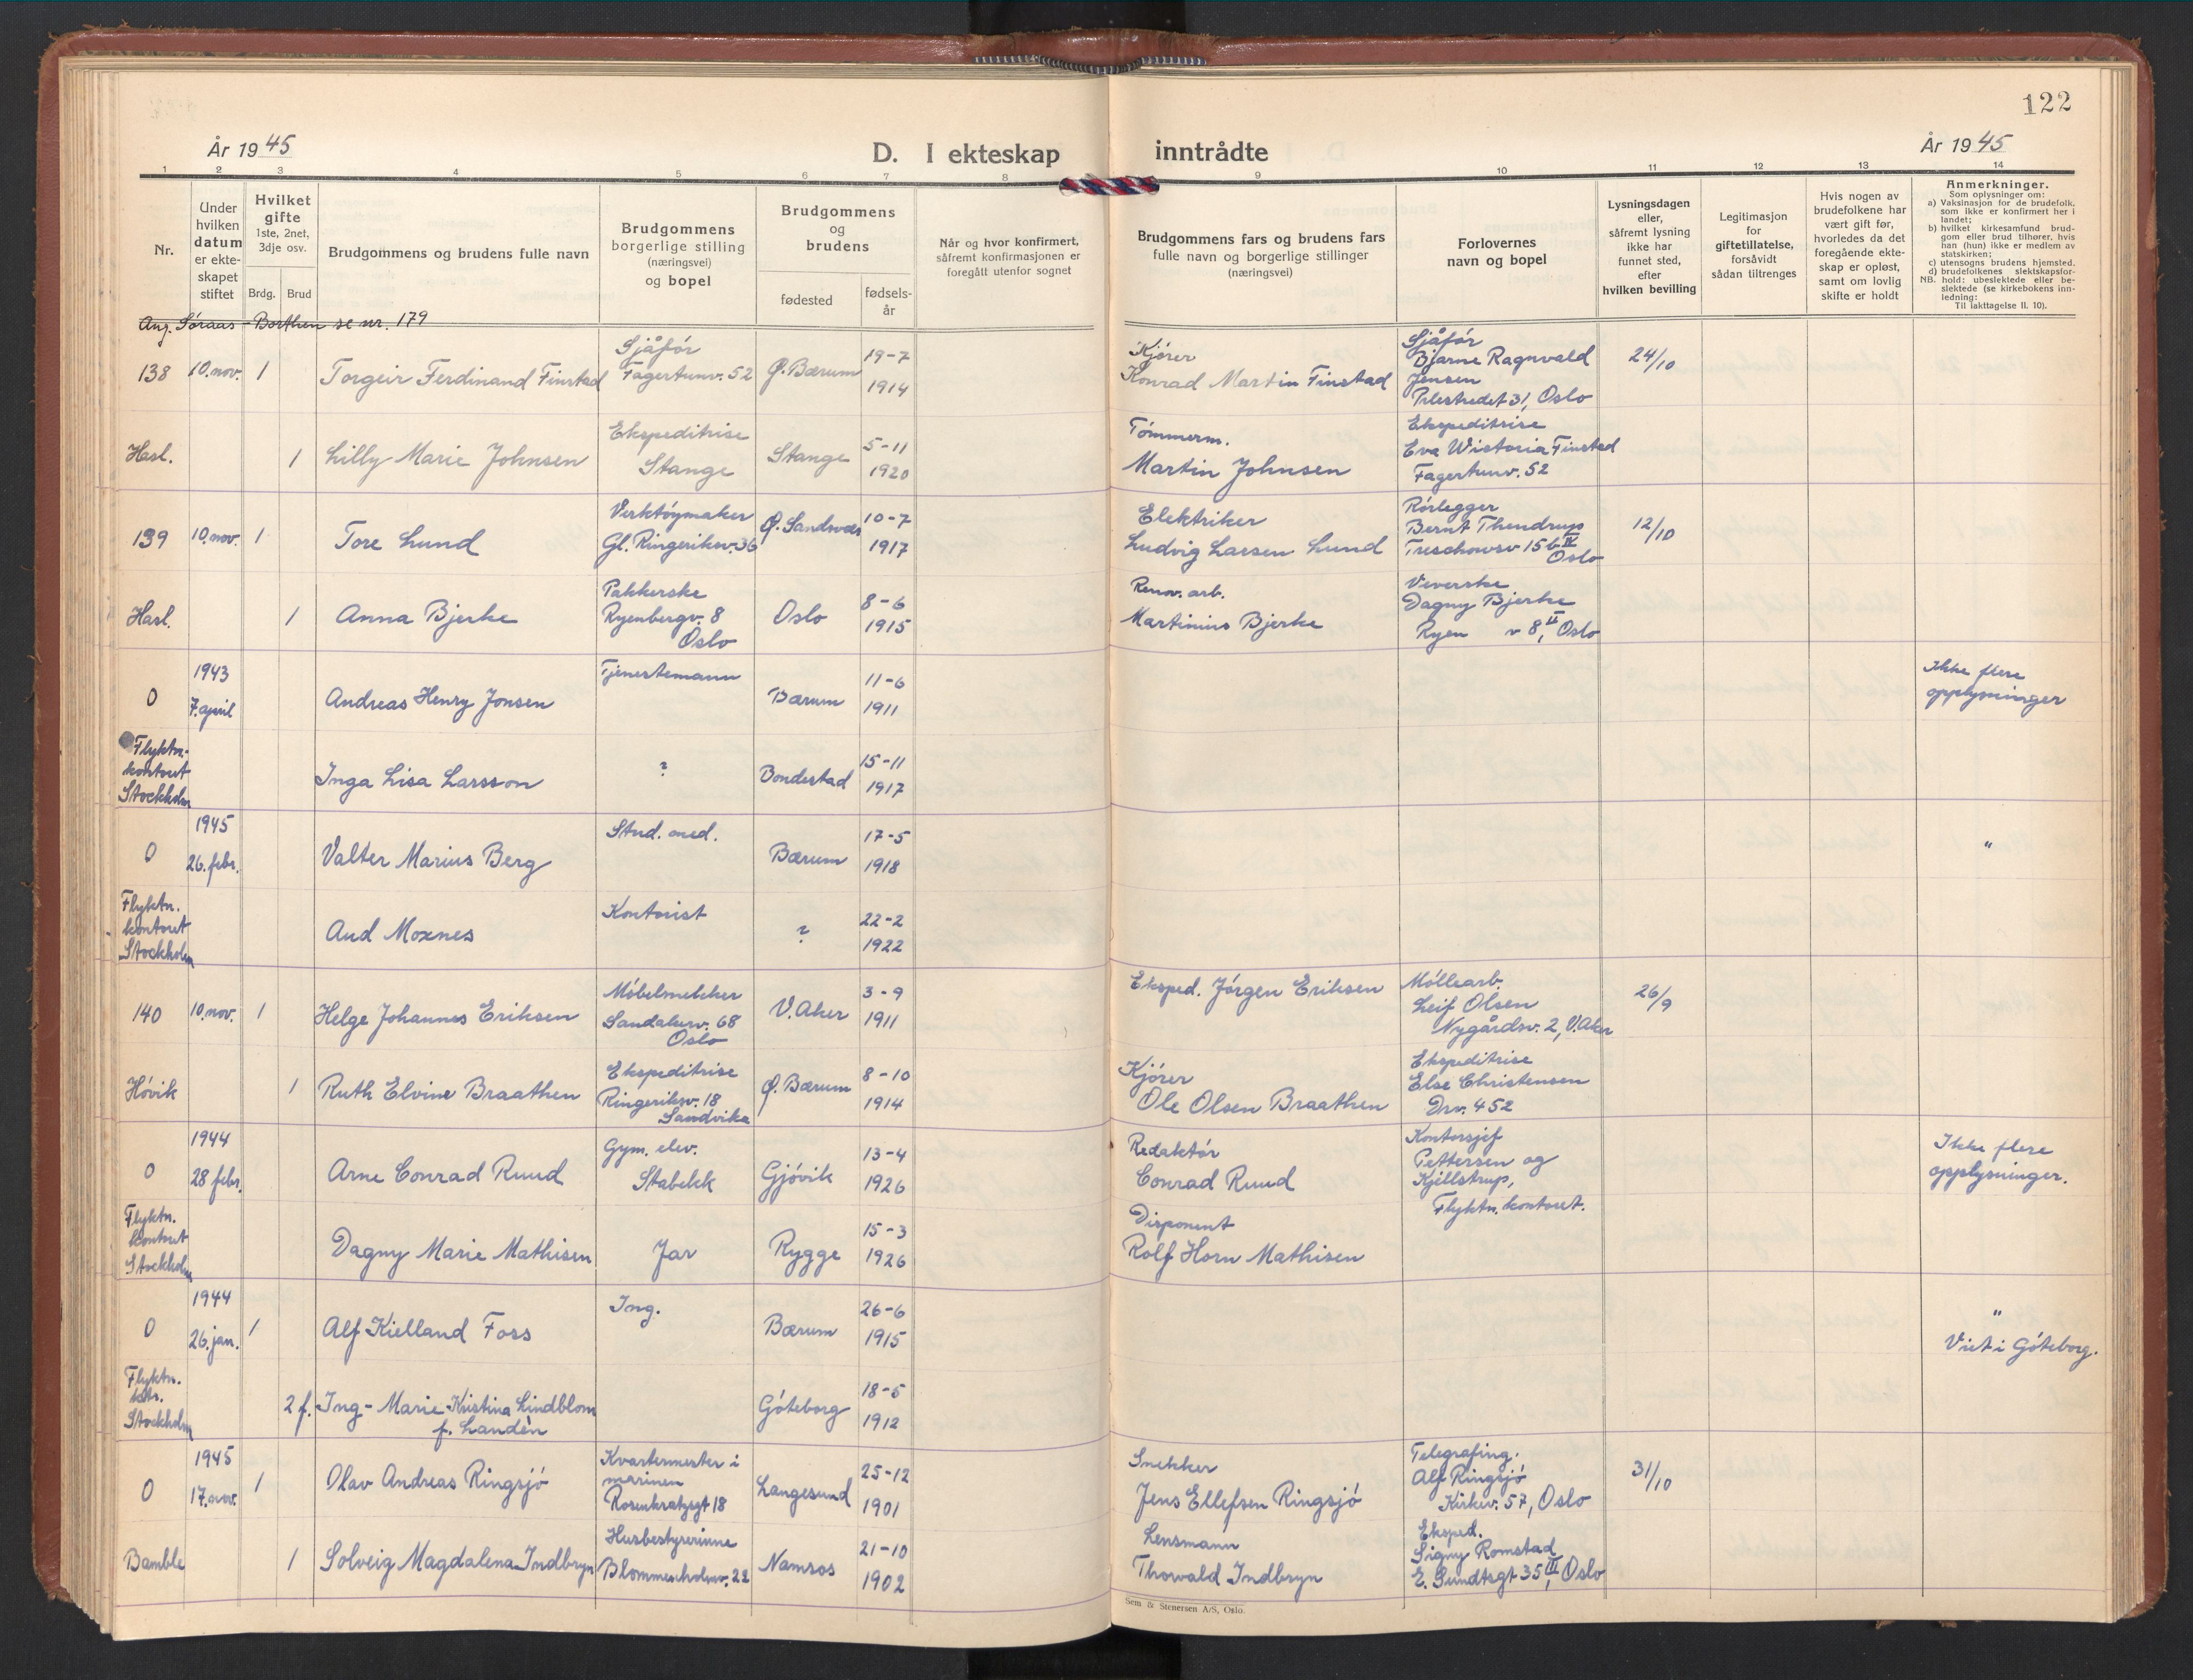 122
År 1945
D. I ekteskap inntrådte
År 1945
1 2 3 4 5 6 7 8 9 10 11 12 13 14
Nr.
Under
hvilken
datum
er ekte-
skapet
stiftet
Hvilket
gifte
1ste, 2net,
3dje osv.
Brdg. Brud
Brudgommens og brudens fulle navn
Brudgommens
borgerlige stilling
(næringsvei)
og bopel
Brudgommens
og
brudens
fødested
fødsels-
år
Når og hvor konfirmert,
såfremt konfirmasjonen er
foregått utenfor sognet
Brudgommens fars og brudens fars
fulle navn og borgerlige stillinger
(næringsvei)
Forlovernes
navn og bopel
Lysningsdagen
eller,
såfremt lysning
ikke har
funnet sted,
efter
hvilken bevilling
Legitimasjon
for
giftetillatelse,
forsåvidt
sådan tiltrenges
Hvis nogen av
brudefolkene har
vært gift før,
hvorledes da det
foregående ekte-
skap er opløst,
samt om lovlig
skifte er holdt
Anmerkninger.
Som oplysninger om:
a) Vaksinasjon for de brudefolk,
som ikke er konfirmert her i
landet;
b) hvilket kirkesamfund brud-
gom eller brud tilhører, hvis
han (hun) ikke er medlem av
statskirken;
c) utensogns brudens hjemsted.
d) brudefolkenes slektskapsfor-
hold: ubeslektede eller be-
slektede (se kirkebokens inn-
ledning:
NB. Til iakttagelse II. 10).
Ang. Søraas - Borthen se nr. 179
138 10. nov. 1 Torgeir Ferdinand Finstad
Sjåfør
Fagertunv. 52
Ø. Bærum
19-7
1914
Kjører
Konrad Martin Finstad
Sjåfør
Bjarne Ragnvald
Jensen
Pilestredet 31, Oslo
24/10
Hasl. 1 Lilly Marie Johnsen
Ekspeditrise
Stange
Stange
5-11
1920
Tømmerm.
Martin Johnsen
Ekspeditrise
Eva Wictoria Finstad
Fagertunv. 52
139 10. nov. 1 Tore Lund
Verktøymaker
Gl. Ringeriksv. 36
Ø. Sandsvær
10-7
1917
Elektriker
Ludvig Larsen Lund
Rørlegger
Bernt Thendrup
Treschowsv 15 b IV
Oslo
12/10
Hasl. 1 Anna Bjerke
Pakkerske
Ryenbergv. 8
Oslo
Oslo
8-6
1915
Renov. arb.
Martinius Bjerke
Veverske
Dagny Bjerke
Ryen v 8 II, Oslo
0
1943
7. april
Andreas Henry Jonsen
Tjenestemann
Bærum
11-6
1911
Ikke flere
opplysninger
Flyktn.
kontoret
Stockholm
Inga Lisa Larsson
?
Bondestad
15-11
1917
0
1945
26. febr.
Valter Marius Berg
Stud. med.
Bærum
17-5
1918
"
Flyktn.
kontoret
Stockholm
Aud Moxnes
Kontorist
?
22-2
1922
140 10. nov. 1 Helge Johannes Eriksen
Møbelsnekker
Sandakerv. 68
Oslo
V. Aker
3-9
1911
Eksped. Jørgen Eriksen
Møllearb.
Leif Olsen
Nygårdsv. 2, V. Aker
26/9
Høvik 1 Ruth Elvine Braathen
Ekspeditrise
Ringeriksv. 18
Sandvika
Ø. Bærum
8-10
1914
Kjører
Ole Olsen Braathen
Ekspeditrise
Else Christensen
Drv. 452
0
1944
28 febr.
Arne Conrad Ruud
Gym. elev.
Stabekk
Gjøvik
13-4
1926
Redaktør
Conrad Ruud
Kontorsjef
Pettersen og
Kjellstrup,
Flyktn. kontoret.
Ikke flere
opplysninger.
Flyktn.
kontoret
Stockholm
Dagny Marie Mathisen
Jar
Rygge
15-3
1926
Disponent
Rolf Horn Mathisen
0
1944
26. jan. 1
Alf Kielland Foss
Ing.
Bærum
26-6
1915
"
Viet i Göteborg.
Flyktn.
ktr.
Stockholm
2 f. Ing-Marie Kristina Lindblom
f. Landén
Göteborg
18-5
1912
0
1945
17. nov. 1
Olav Andreas Ringsjø
Kvartermester i
marinen
Rosenkratzgt 18
Langesund
25-12
1901
Snekker
Jens Ellefsen Ringsjø
Telegrafing.
Alf Ringsjø
Kirkev. 57, Oslo
31/10
Bamble 1 Solveig Magdalena Indbryn
Husbestyrerinne
Blommenholmv. 22
Namsos
21-10
1902
Lensmann
Thorvald Indbryn
Eksped.
Signy Romstad
E. Sundtsgt 35 III, Oslo
Sem & Stenersen A/S, Oslo.